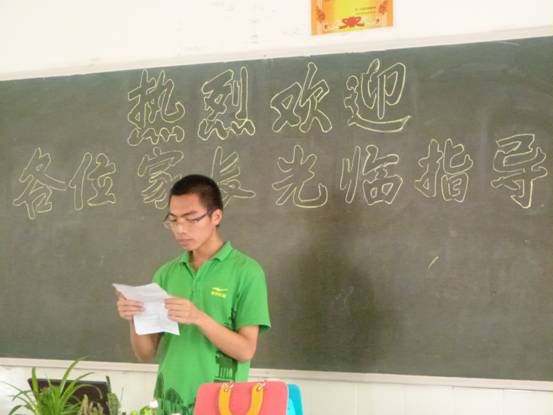 热烈欢迎
各位家长光临指导